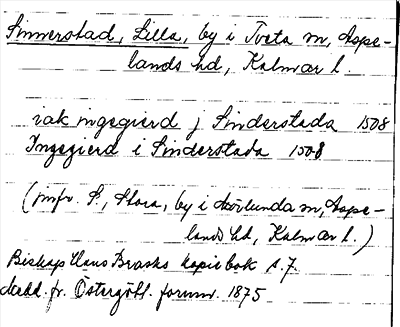 Sinnerstad, Lilla, by i Tveta sn, Aspe-
lands hd, Kalmar l.
iak ingegierd j Sinderstada 1508
Ingegierd i Sinderstada 1508
(jmfr. S., Stora, by i Mörlunda sn, Aspe-
lands hd, Kalmar l.)
Biskop Hans Brasks kopiebok s. 7.
Medd. fr. Östergötl. fornm. 1875